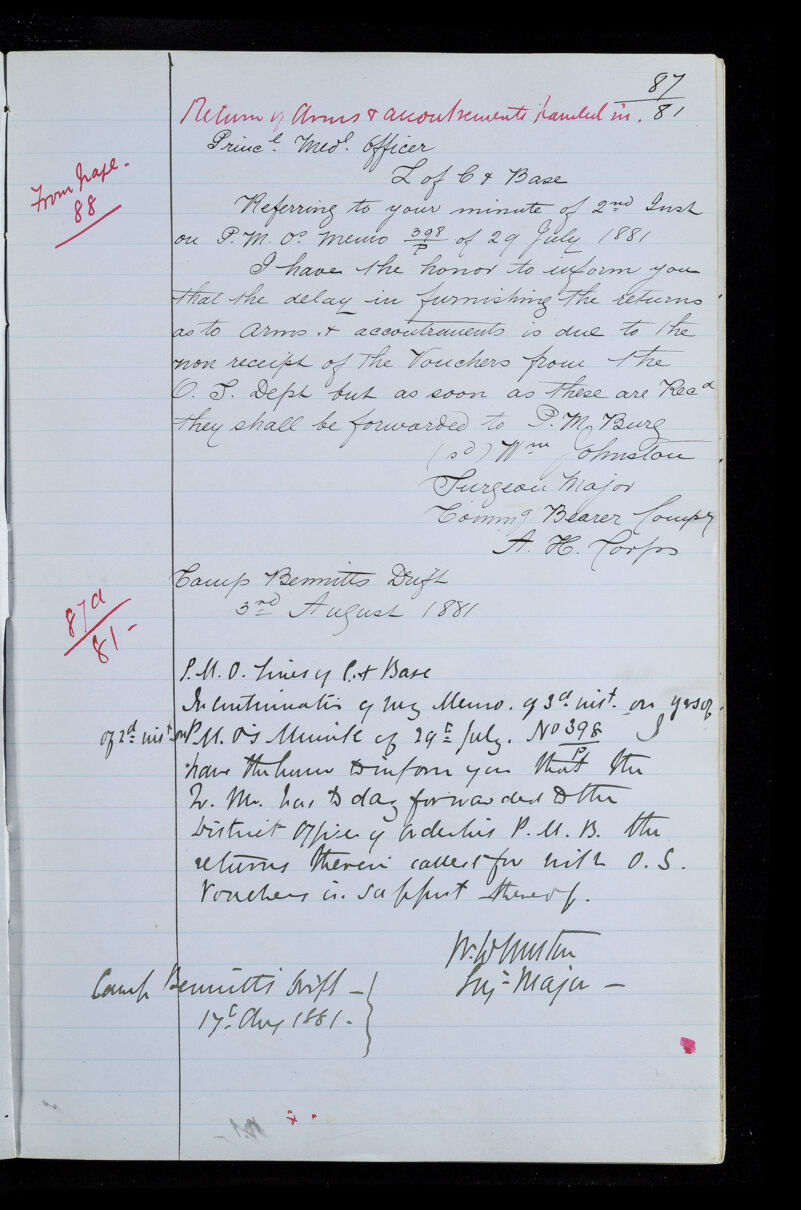 87
81
Return of Arms & accoutrements handed in.
Princl. Medl. Officer
L of C & Base
From page.
88
Referring to your minute of 2nd Inst
on P. M. Os. Memo 398/P of 29 July 1881
I have the honor to inform you
that the delay in furnishing the returns
as to Arms & accoutrements is due to the
non receipt of the Vouchers from the
O. S. Dept but as soon as these are Recd
they shall be forwarded to P. M. Burg
(sd) Wm Johnston
Surgeon Major
Commg Bearer Compy
A. H. Corps
Camp Bennitts Drift
3rd August 1881
87a
81-
P. M. O. Lines of C. & Base
In continuation of my Memo. of 3d inst. on yrs of
of 2d inst. on P.M. O's Minute of 29th July. No 398/P I
have the honor to inform you that the
Qr. Mr. has to day forwarded to the
District Officer of Orderlies P. M. B. the
returns therein called for with O. S.
Vouchers in support thereof.
W. Johnston
Surj- Major -
Camp Bennitts Drift -
17th Aug 1881.